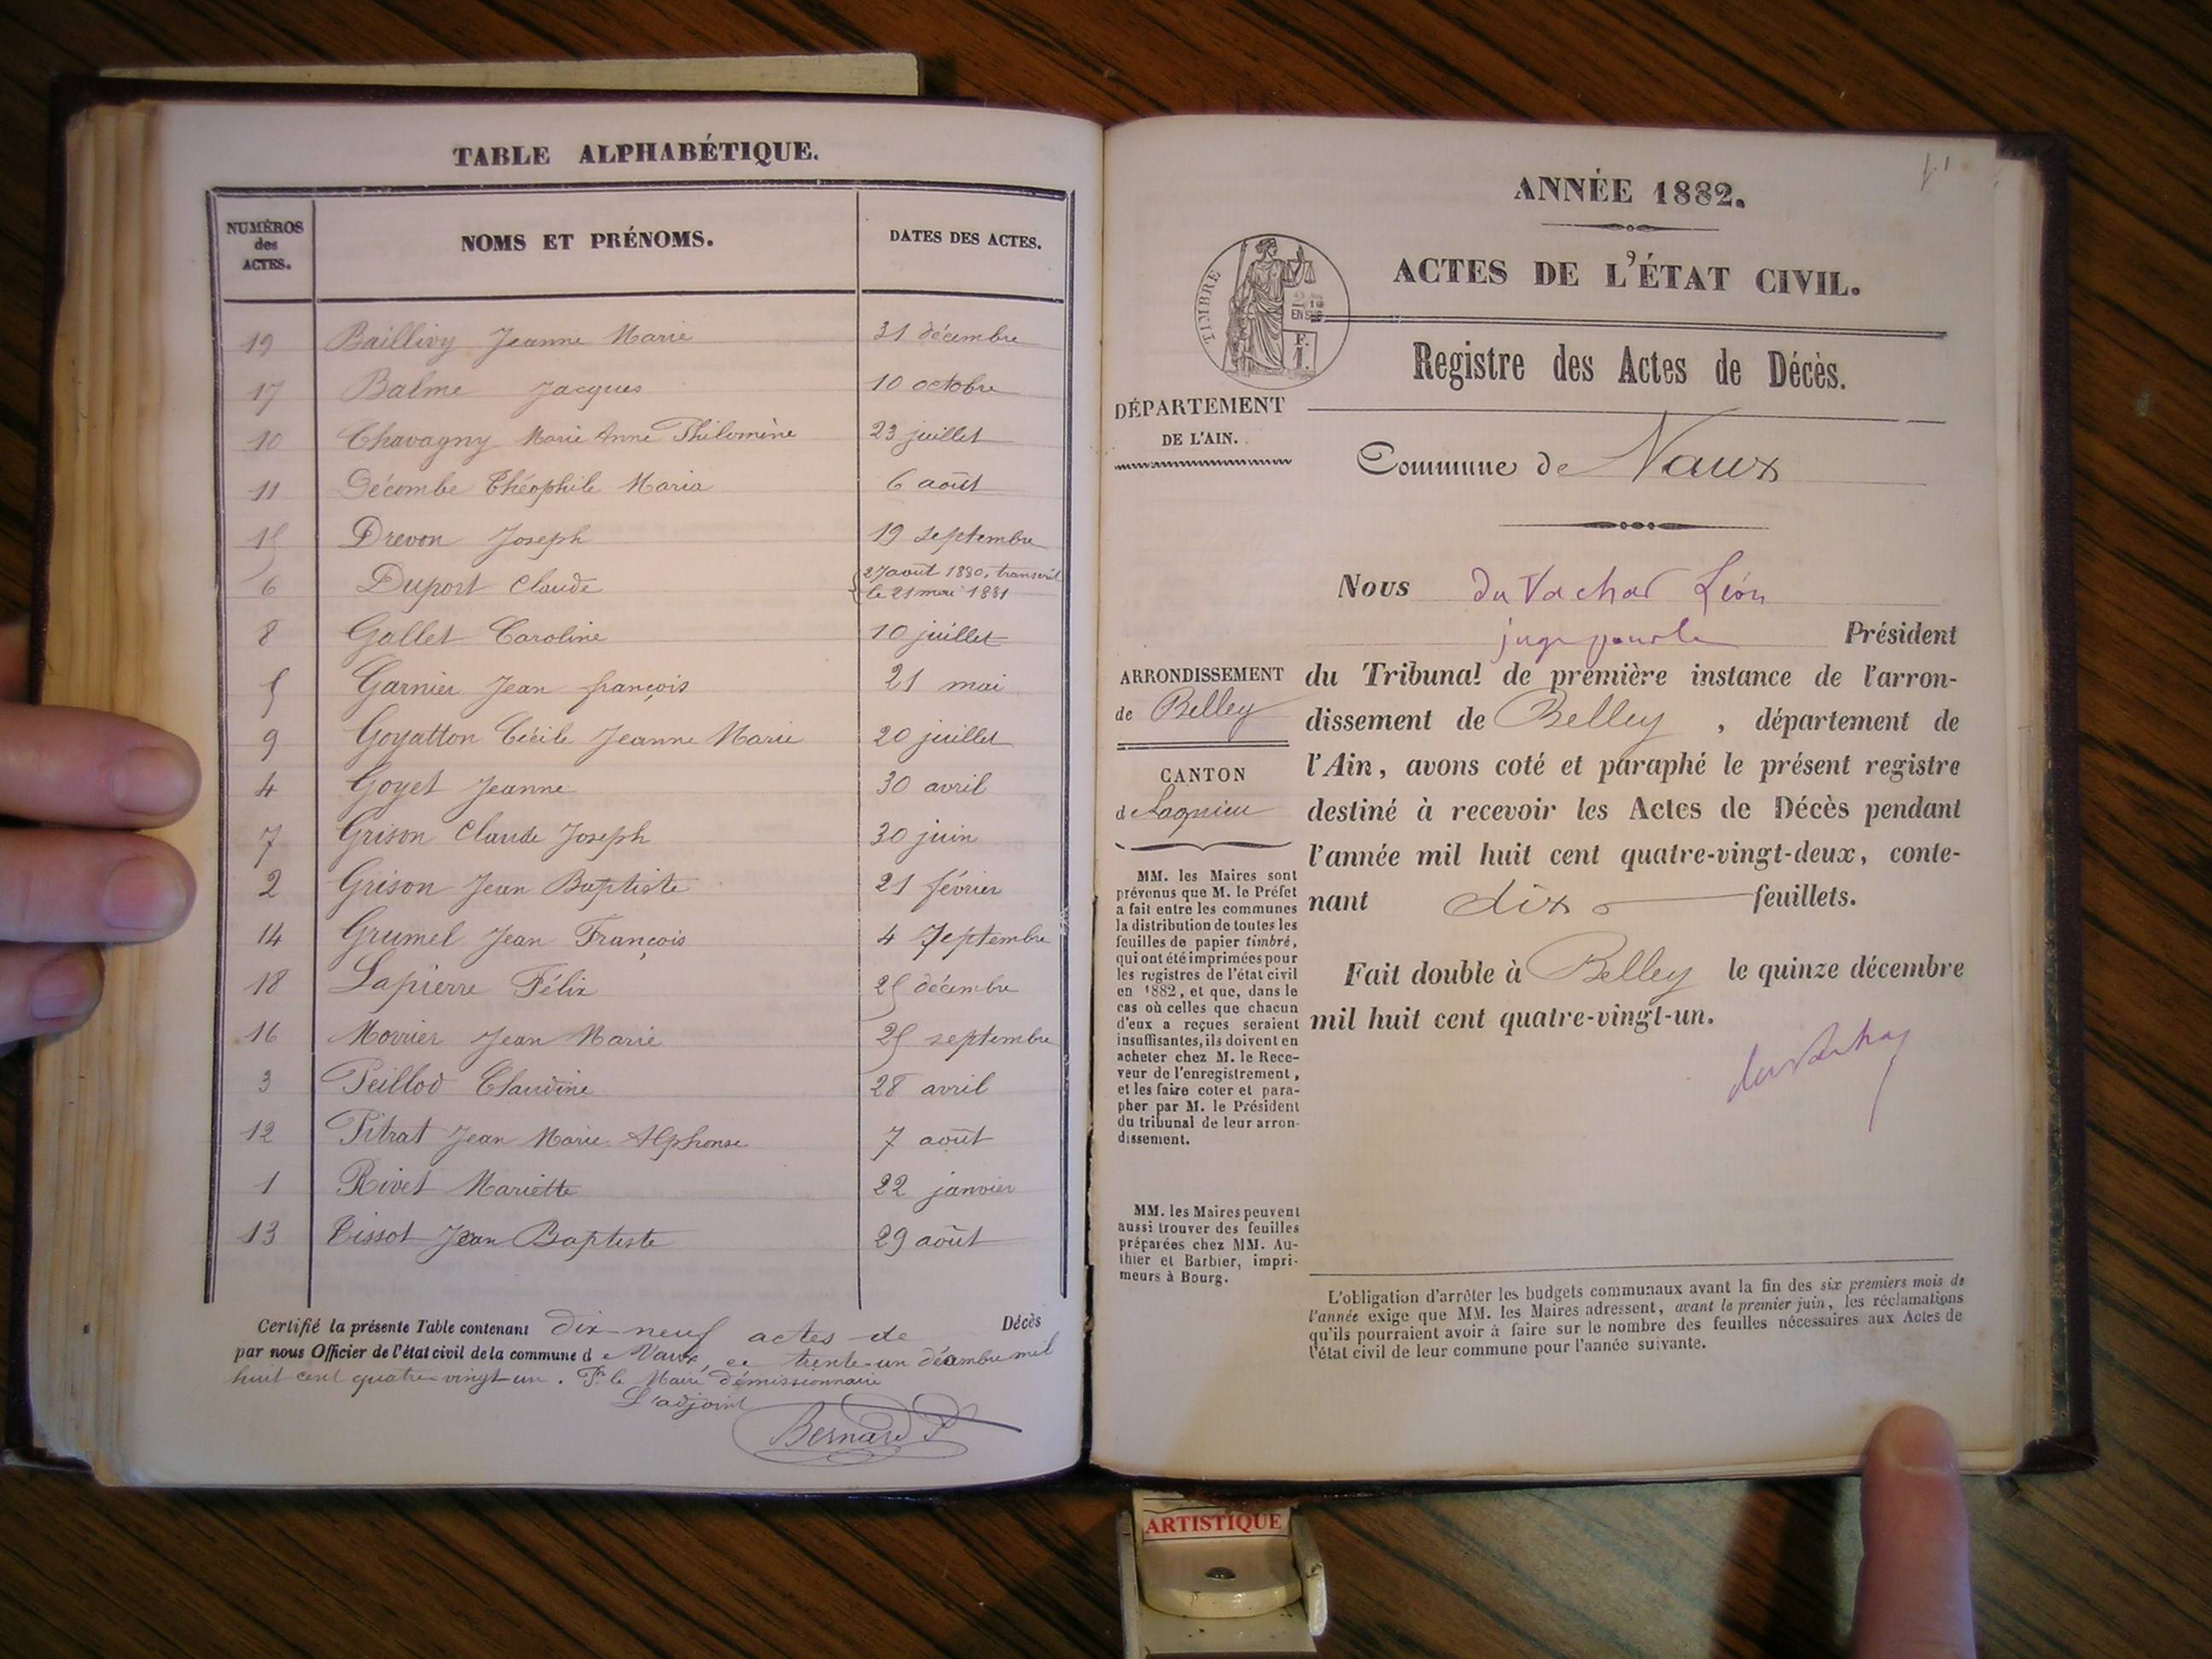 TABLE ALPHABÉTIQUE.
NUMÉROS des ACTES. NOMS ET PRÉNOMS. DATES DES ACTES.
19 Baillivy Jeanne Marie 31 décembre
17 Balme Jacques 10 octobre
10 Chavagny Marie Anne Philomène 23 juillet
11 Décombe Théophile Maria 6 août
15 Drevon Joseph 19 septembre
6 Duport Claude 27 août 1880, transcrit
le 21 mai 1881
8 Gallet Caroline 10 juillet
5 Garnier Jean françois 21 mai
9 Goyatton Cécile Jeanne Marie 20 juillet
4 Goyet Jeanne 30 avril
7 Grison Claude Joseph 30 juin
2 Grison Jean Baptiste 21 février
14 Grumel Jean François 4 Septembre
18 Lapierre Félix 25 décembre
16 Morrier Jean Marie 25 septembre
3 Peillod Claudine 28 avril
12 Pitrat Jean Marie Alphonse 7 août
1 Rivet Mariette 22 janvier
13 Tissot Jean Baptiste 29 août
Certifié la présente Table contenant dix-neuf actes de Décès
par nous Officier de l'état civil de la commune de Vaux, ce trente-un décembre mil
huit cent quatre-vingt-un. Pr le Maire démissionnaire
L'adjoint
Bernard P
ANNÉE 1882.
ACTES DE L'ÉTAT CIVIL.
TIMBRE
EN SUS
F.
1.
Registre des Actes de Décès.
DÉPARTEMENT
DE L'AIN.
Commune de Vaux
Nous du Vachat Léon
juge pour le Président
ARRONDISSEMENT
de Belley
CANTON
de Lagnieu
du Tribunal de première instance de l'arron-
dissement de Belley, département de
l'Ain, avons coté et paraphé le présent registre
destiné à recevoir les Actes de Décès pendant
l'année mil huit cent quatre-vingt-deux, conte-
nant dix feuillets.
Fait double à Belley le quinze décembre
mil huit cent quatre-vingt-un.
MM. les Maires sont
prévenus que M. le Préfet
a fait entre les communes
la distribution de toutes les
feuilles de papier timbré,
qui ont été imprimées pour
les registres de l'état civil
en 1882, et que, dans le
cas où celles que chacun
d'eux a reçues seraient
insuffisantes, ils doivent en
acheter chez M. le Rece-
veur de l'enregistrement,
et les faire coter et para-
pher par M. le Président
du tribunal de leur arron-
dissement.
MM. les Maires peuvent
aussi trouver des feuilles
préparées chez MM. Au-
thier et Barbier, impri-
meurs à Bourg.
L'obligation d'arrêter les budgets communaux avant la fin des six premiers mois de
l'année exige que MM. les Maires adressent, avant le premier juin, les réclamations
qu'ils pourraient avoir à faire sur le nombre des feuilles nécessaires aux Actes de
l'état civil de leur commune pour l'année suivante.
ARTISTIQUE